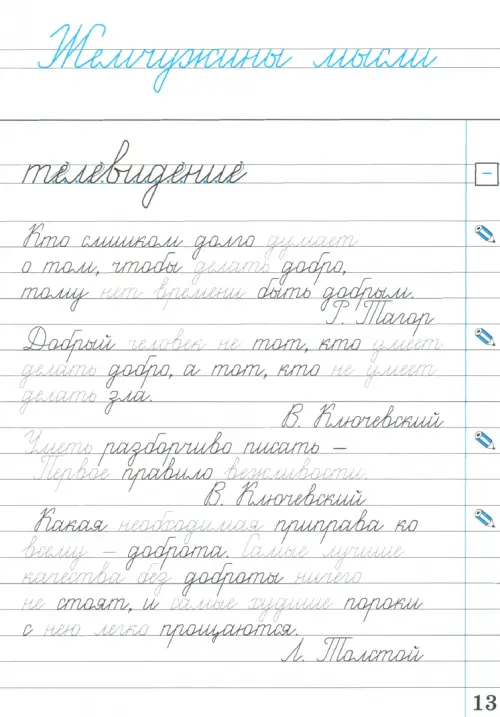 Жемчужины мысли
телевидение
Кто слишком долго думает
о том, чтобы делать добро,
тому нет времени быть добрым.
Р. Тагор
Добрый человек не тот, кто умеет
делать добро, а тот, кто не умеет
делать зла.
В. Ключевский
Уметь разборчиво писать –
Первое правило вежливости.
В. Ключевский
Какая необходимая приправа ко
всему – доброта. Самые лучшие
качества без доброты ничего
не стоят, и самые худшие пороки
с нею легко прощаются.
Л. Толстой
13